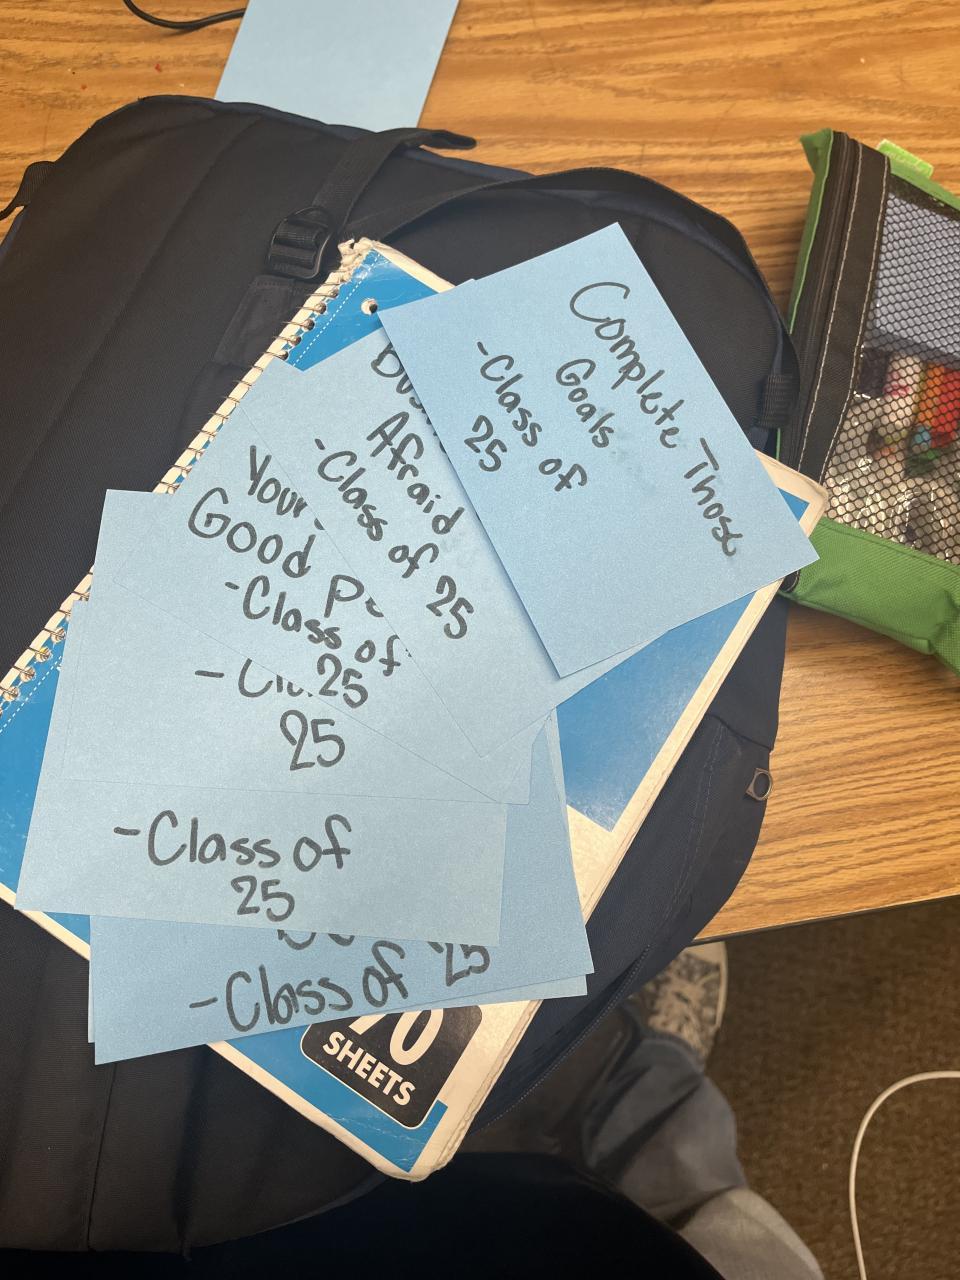 Complete Those
Goals.
-Class of
25
Afraid
-Class of 25
Your
Good
-Class of
25
-
25
-Class of
25
-Class of 25
70
SHEETS